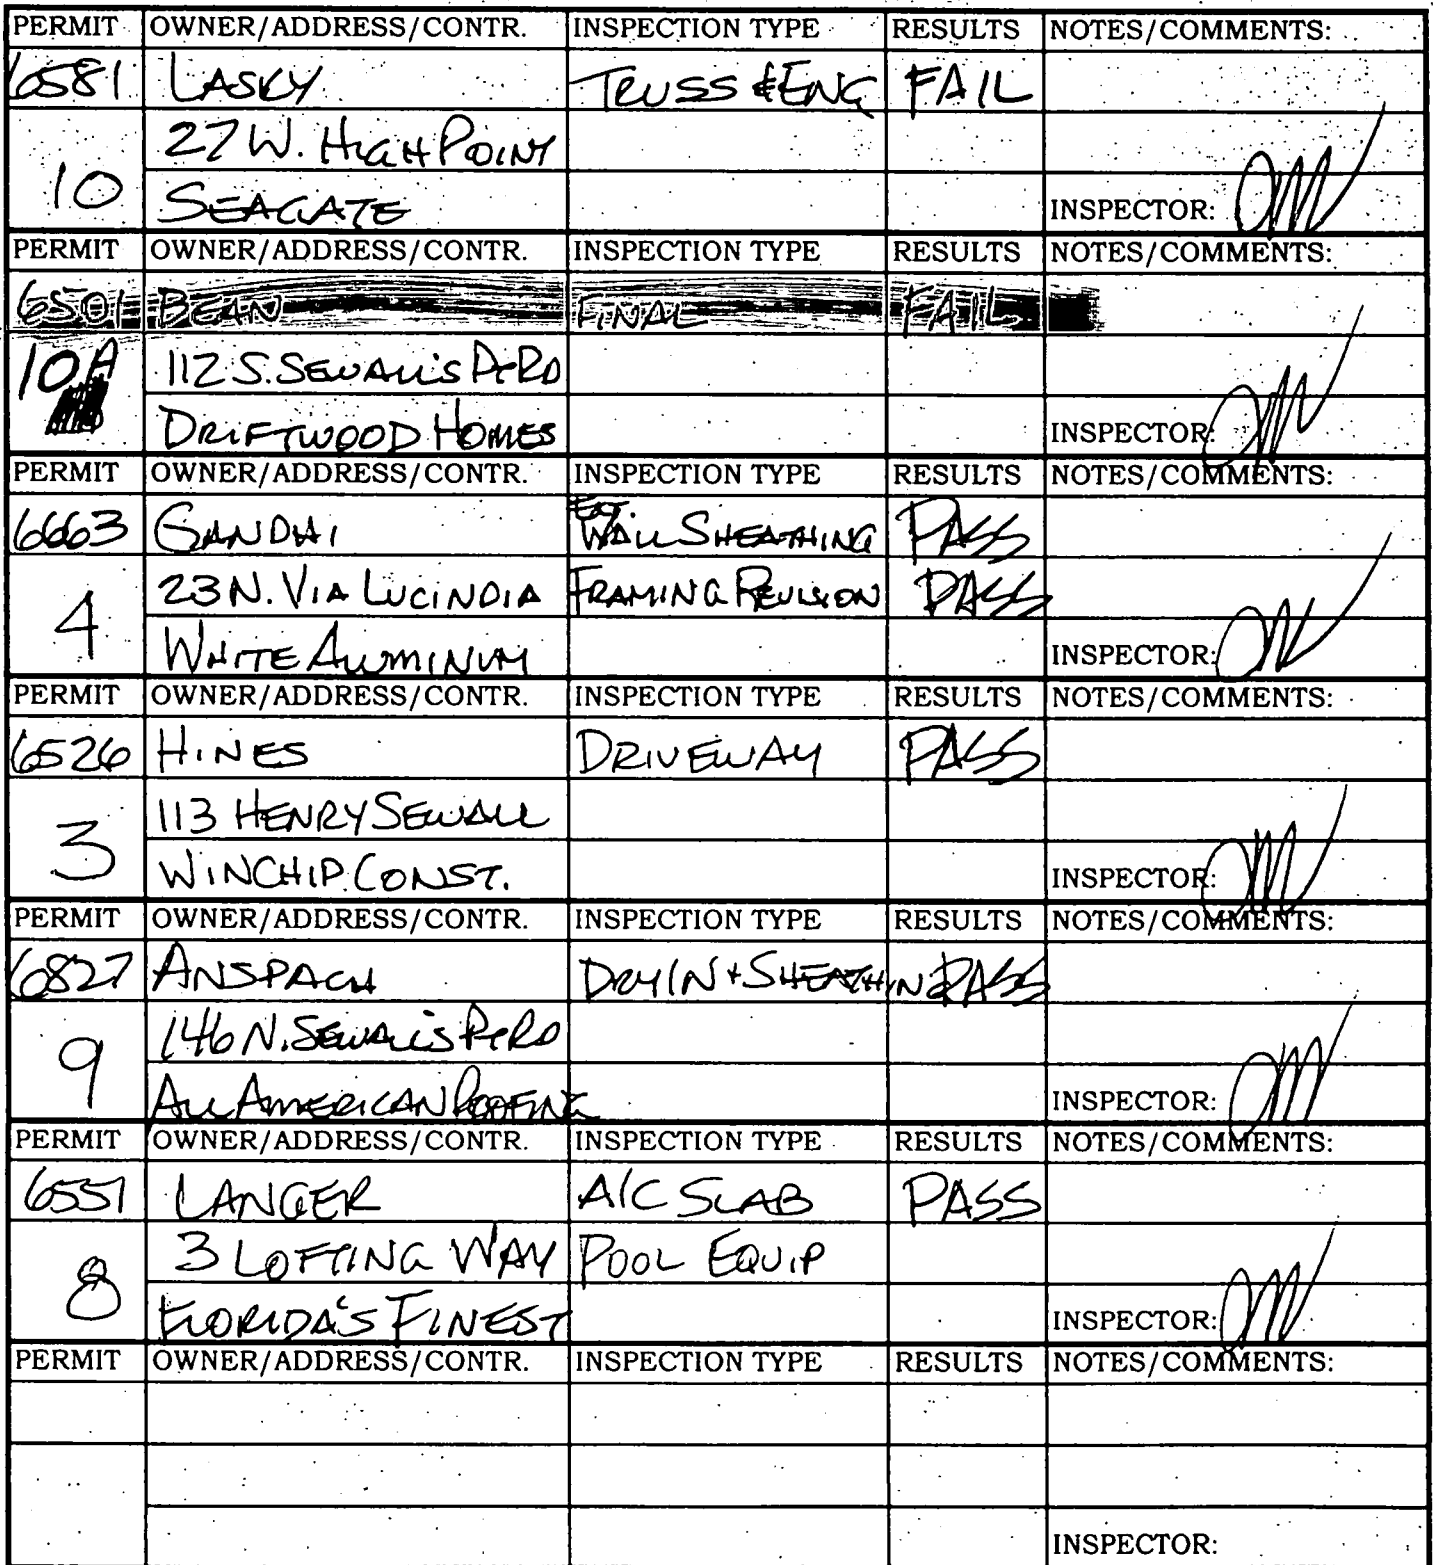 PERMIT OWNER/ADDRESS/CONTR. INSPECTION TYPE RESULTS NOTES/COMMENTS:
6581 LASKY TRUSS & ENG FAIL
27 W. HIGH POINT
10 SEAGATE INSPECTOR:
PERMIT OWNER/ADDRESS/CONTR. INSPECTION TYPE RESULTS NOTES/COMMENTS:
6501 BEAN FINAL FAIL
10A 112 S. SEWALL'S PT RD
DRIFTWOOD HOMES INSPECTOR:
PERMIT OWNER/ADDRESS/CONTR. INSPECTION TYPE RESULTS NOTES/COMMENTS:
6663 GANDHI EXT. WALL SHEATHING PASS
23 N. VIA LUCINDIA FRAMING REVISION PASS
4 WHITE ALUMINUM INSPECTOR:
PERMIT OWNER/ADDRESS/CONTR. INSPECTION TYPE RESULTS NOTES/COMMENTS:
6526 HINES DRIVEWAY PASS
113 HENRY SEWALL
3 WINCHIP CONST. INSPECTOR:
PERMIT OWNER/ADDRESS/CONTR. INSPECTION TYPE RESULTS NOTES/COMMENTS:
6827 ANSPACH DRY IN + SHEATHIN PASS
146 N. SEWALL'S PT RD
9 ALL AMERICAN ROOFING INSPECTOR:
PERMIT OWNER/ADDRESS/CONTR. INSPECTION TYPE RESULTS NOTES/COMMENTS:
6551 LANGER A/C SLAB PASS
3 LOFTING WAY POOL EQUIP
8 FLORIDA'S FINEST INSPECTOR:
PERMIT OWNER/ADDRESS/CONTR. INSPECTION TYPE RESULTS NOTES/COMMENTS:
INSPECTOR: